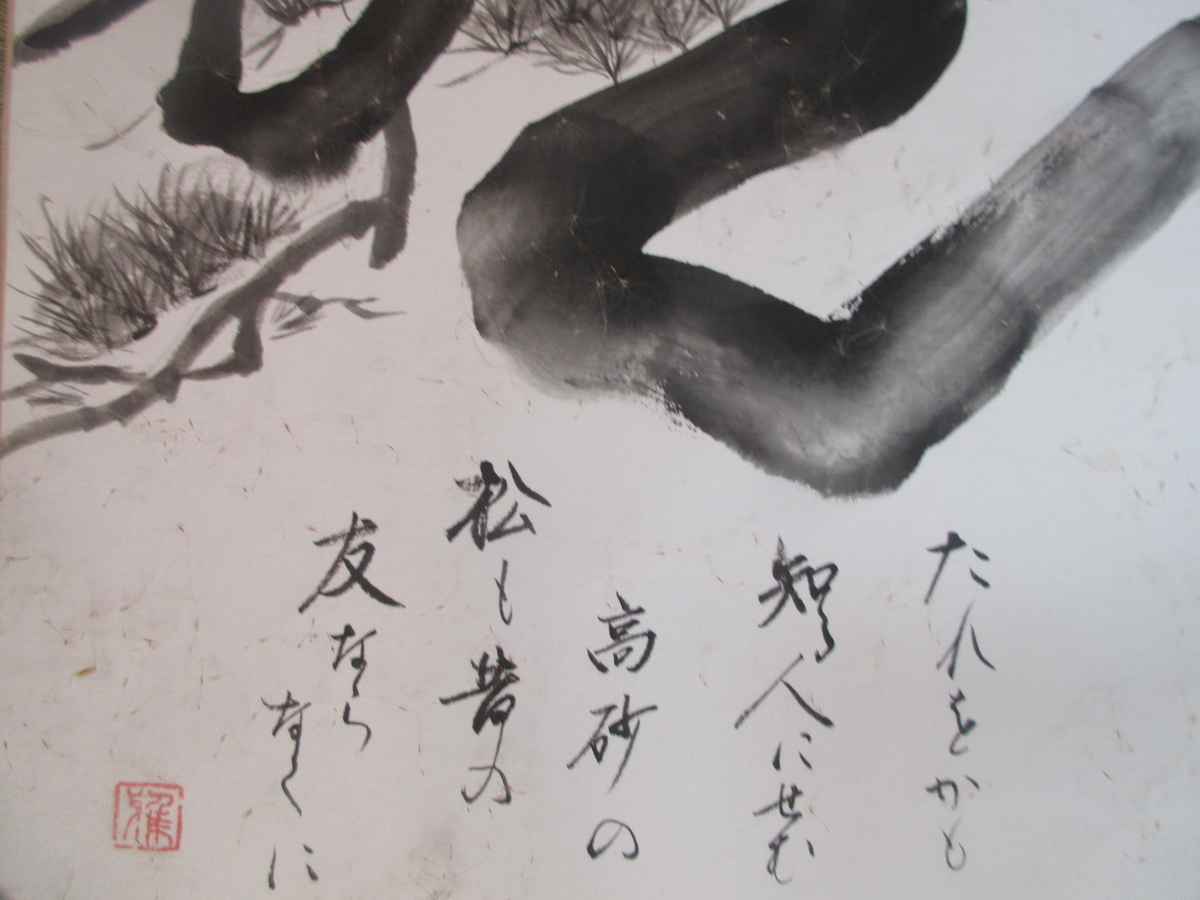 たれをかも
知る人にせむ
高砂の
松も昔の
友なら
なくに
雅